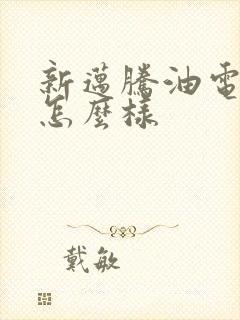 新邁騰油電
怎麼樣
戴敏